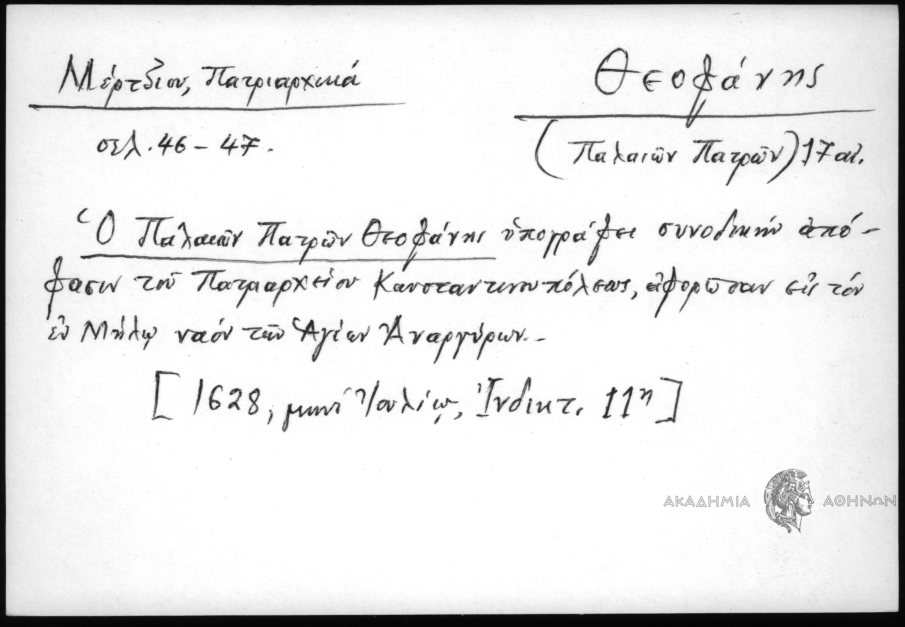 Μέρτζιου, Πατριαρχικά
σελ. 46 – 47.
Θεοφάνης
(Παλαιῶν Πατρῶν) 17 αἰ.
Ὁ Παλαιῶν Πατρῶν Θεοφάνης ὑπογράφει συνοδικήν ἀπό-
φασιν τοῦ Πατριαρχείου Κωνσταντινουπόλεως, ἀφορῶσαν εἰς τόν
ἐν Μήλῳ ναόν τῶν Ἁγίων Ἀναργύρων.-
[1628, μηνί Ἰουλίῳ, Ἰνδικτ. 11η]
ΑΚΑΔΗΜΙΑ ΑΘΗΝΩΝ